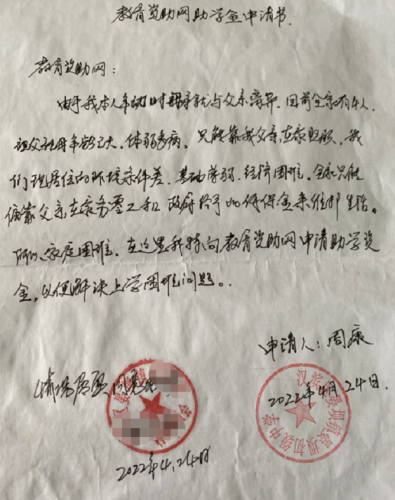 教育资助网助学金申请书
教育资助网：
由于我本人年幼时母亲就与父亲离异，目前全家有4人，
祖父祖母年龄已大，体弱多病，只能靠我父亲在家照顾，我
们现居住的环境条件差，基础薄弱，经济困难，全家只能
偏靠父亲在家务零工和政府给予的低保金来维护生活。
所以家庭困难，在这里我特向教育资助网申请助学资
金，以便解决上学困难问题。
申请人：周康
情况属实
2022年4月24日.
2022.4.24日